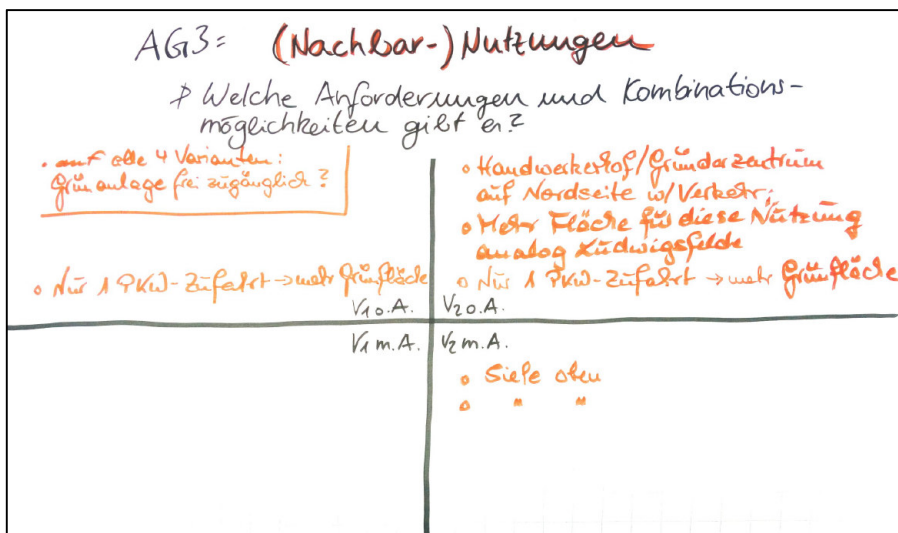 AG3: (Nachbar-) Nutzungen
Welche Anforderungen und Kombinations-
möglichkeiten gibt es?
• auf alle 4 Varianten:
Grünanlage frei zugänglich?
• Nur 1 PKW-Zufahrt → mehr Grünfläche
V1 o.A.
• Handwerkerhof/Gründerzentrum
auf Nordseite w/Verkehr;
• Mehr Fläche für diese Nutzung
analog Ludwigsfelde
• Nur 1 PKW-Zufahrt → mehr Grünfläche
V2 o.A.
V1 m.A.
V2 m.A.
• Siehe oben
• " "